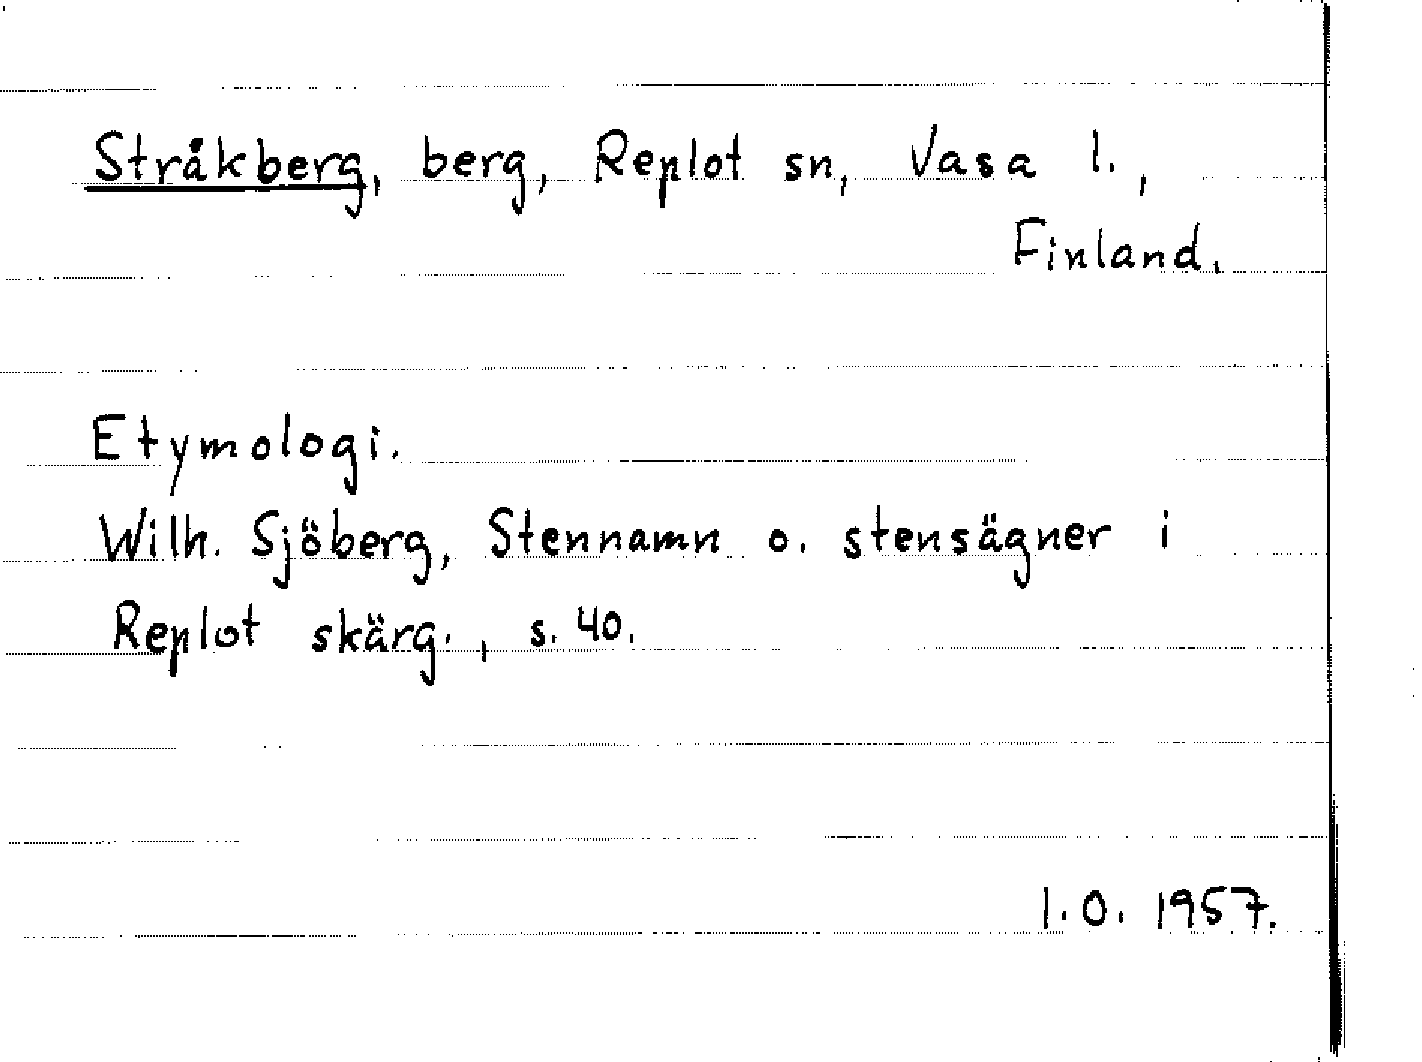 Stråkberg, berg, Replot sn, Vasa l.,
Finland.
Etymologi.
Wilh. Sjöberg, Stennamn o. stensägner i
Replot skärg., s. 40.
I.O. 1957.